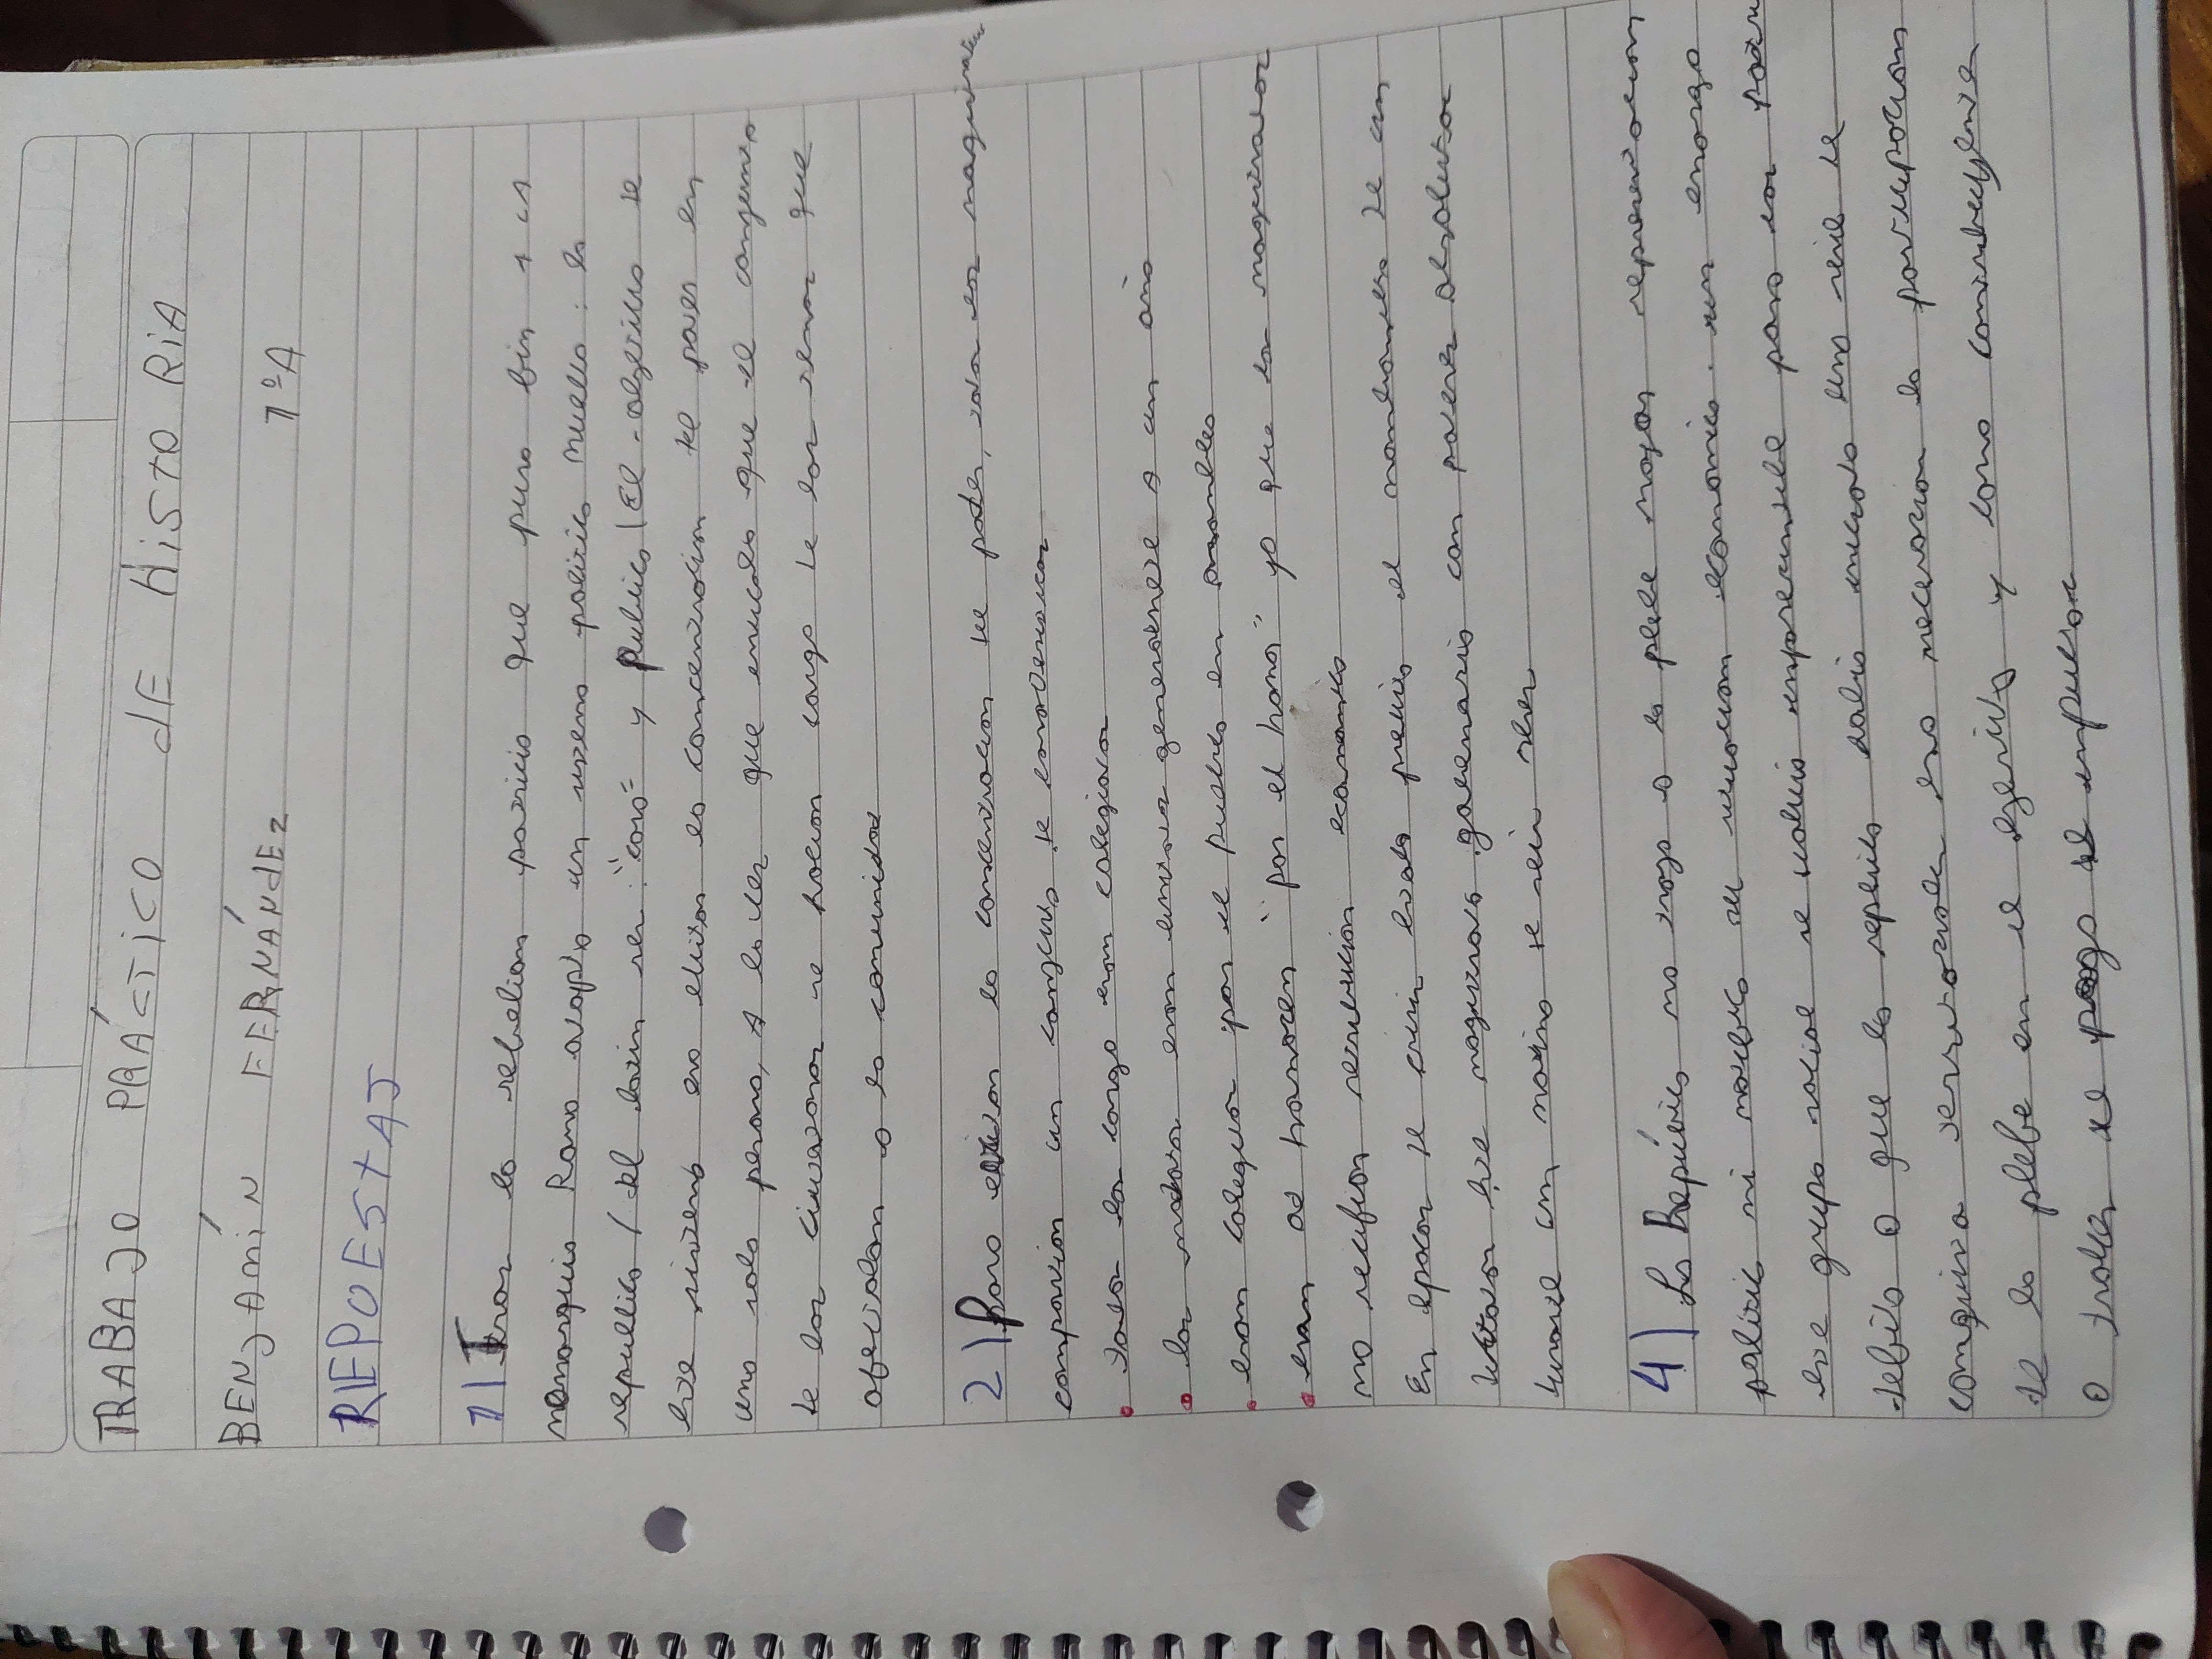 TRABAJO PRÁCTICO dE HiStORiA
BENJAMíN FERNÁNdEZ 1ºA
REPOEStAS
1) Tras la rebelion patricia que puso fin a la
monarquia Roma adopto un sistema politico nuevo: la
republica (del latin res: "cosa" y publica) El objetivo de
ese sistema era evitar la concentracion del poder en
una sola persona, a la vez que
de los ciudadanos se hacian cargo de los temas que
afectaban a la comunidad
2) Para evitar la concentracion del poder, todas las magistraturas
compartian un conjunto de caracteristicas
• todos los cargos eran colegiados
• los mandatos eran limitados generalmente a un año
• eran elegidos por el pueblo en asamblea
• eran ad honorem "por el honor" ya que los magistrados
no recibian retribucion economica
En epocas de crisis habia previsto el nombramiento de un
dictador ese magistrado gobernaria con poderes absolutos
durante un maximo de seis meses
4) La República no trajo a la plebe mayor representacion
politica ni mejoro su situacion economica. sin embargo
ese grupo social se volvio imprescindible para los patricios
debido a que la republica habia iniciado una serie de
conquistas territoriales era necesaria la participacion
de la plebe en el ejercito y como contribuyente
a traves del pago de impuestos